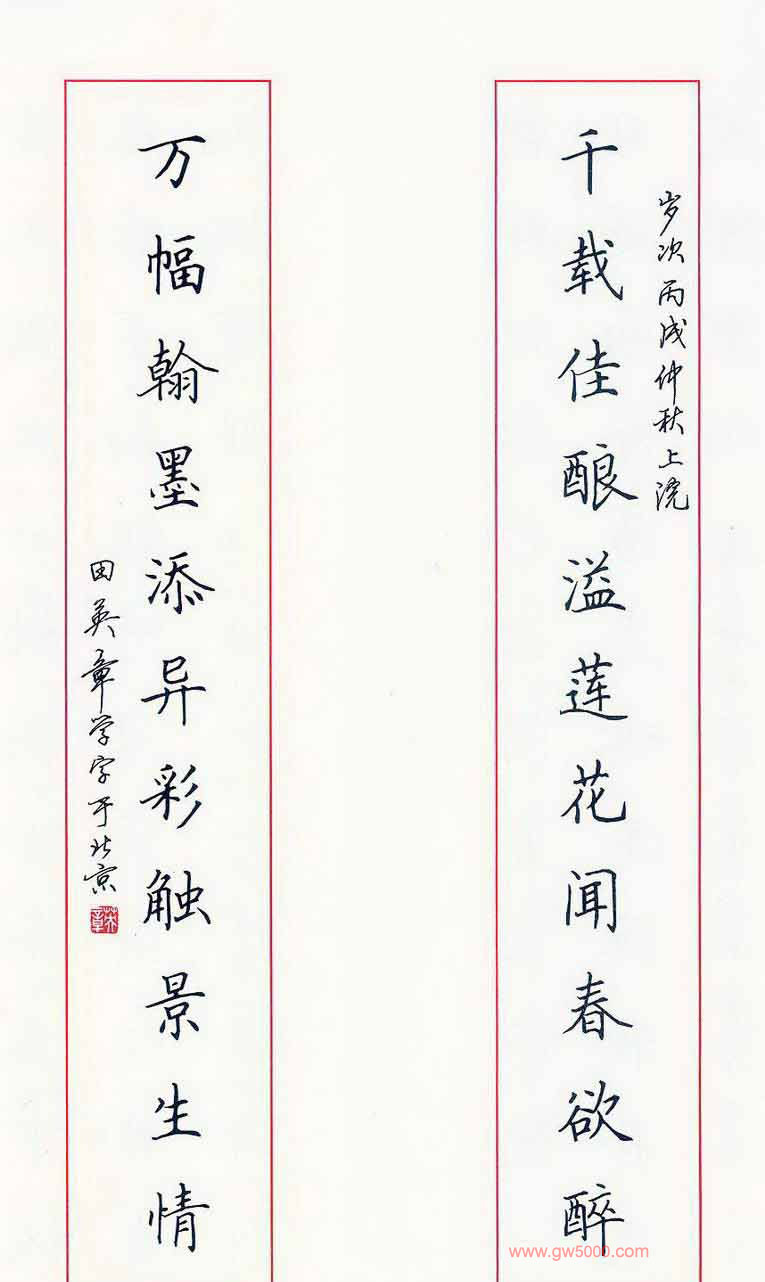 岁次丙戌仲秋上浣
千载佳酿溢莲花闻春欲醉
万幅翰墨添异彩触景生情
田英章学字于北京
英章
www.gw5000.com